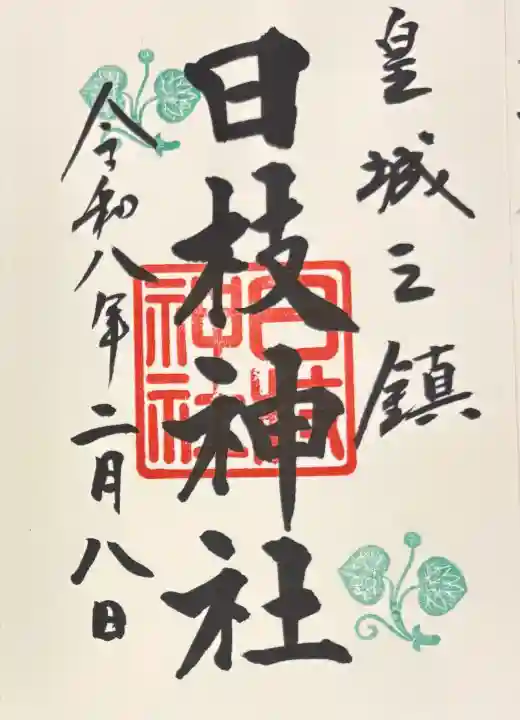 皇城之鎮
日枝神社
令和八年二月八日
日枝神社